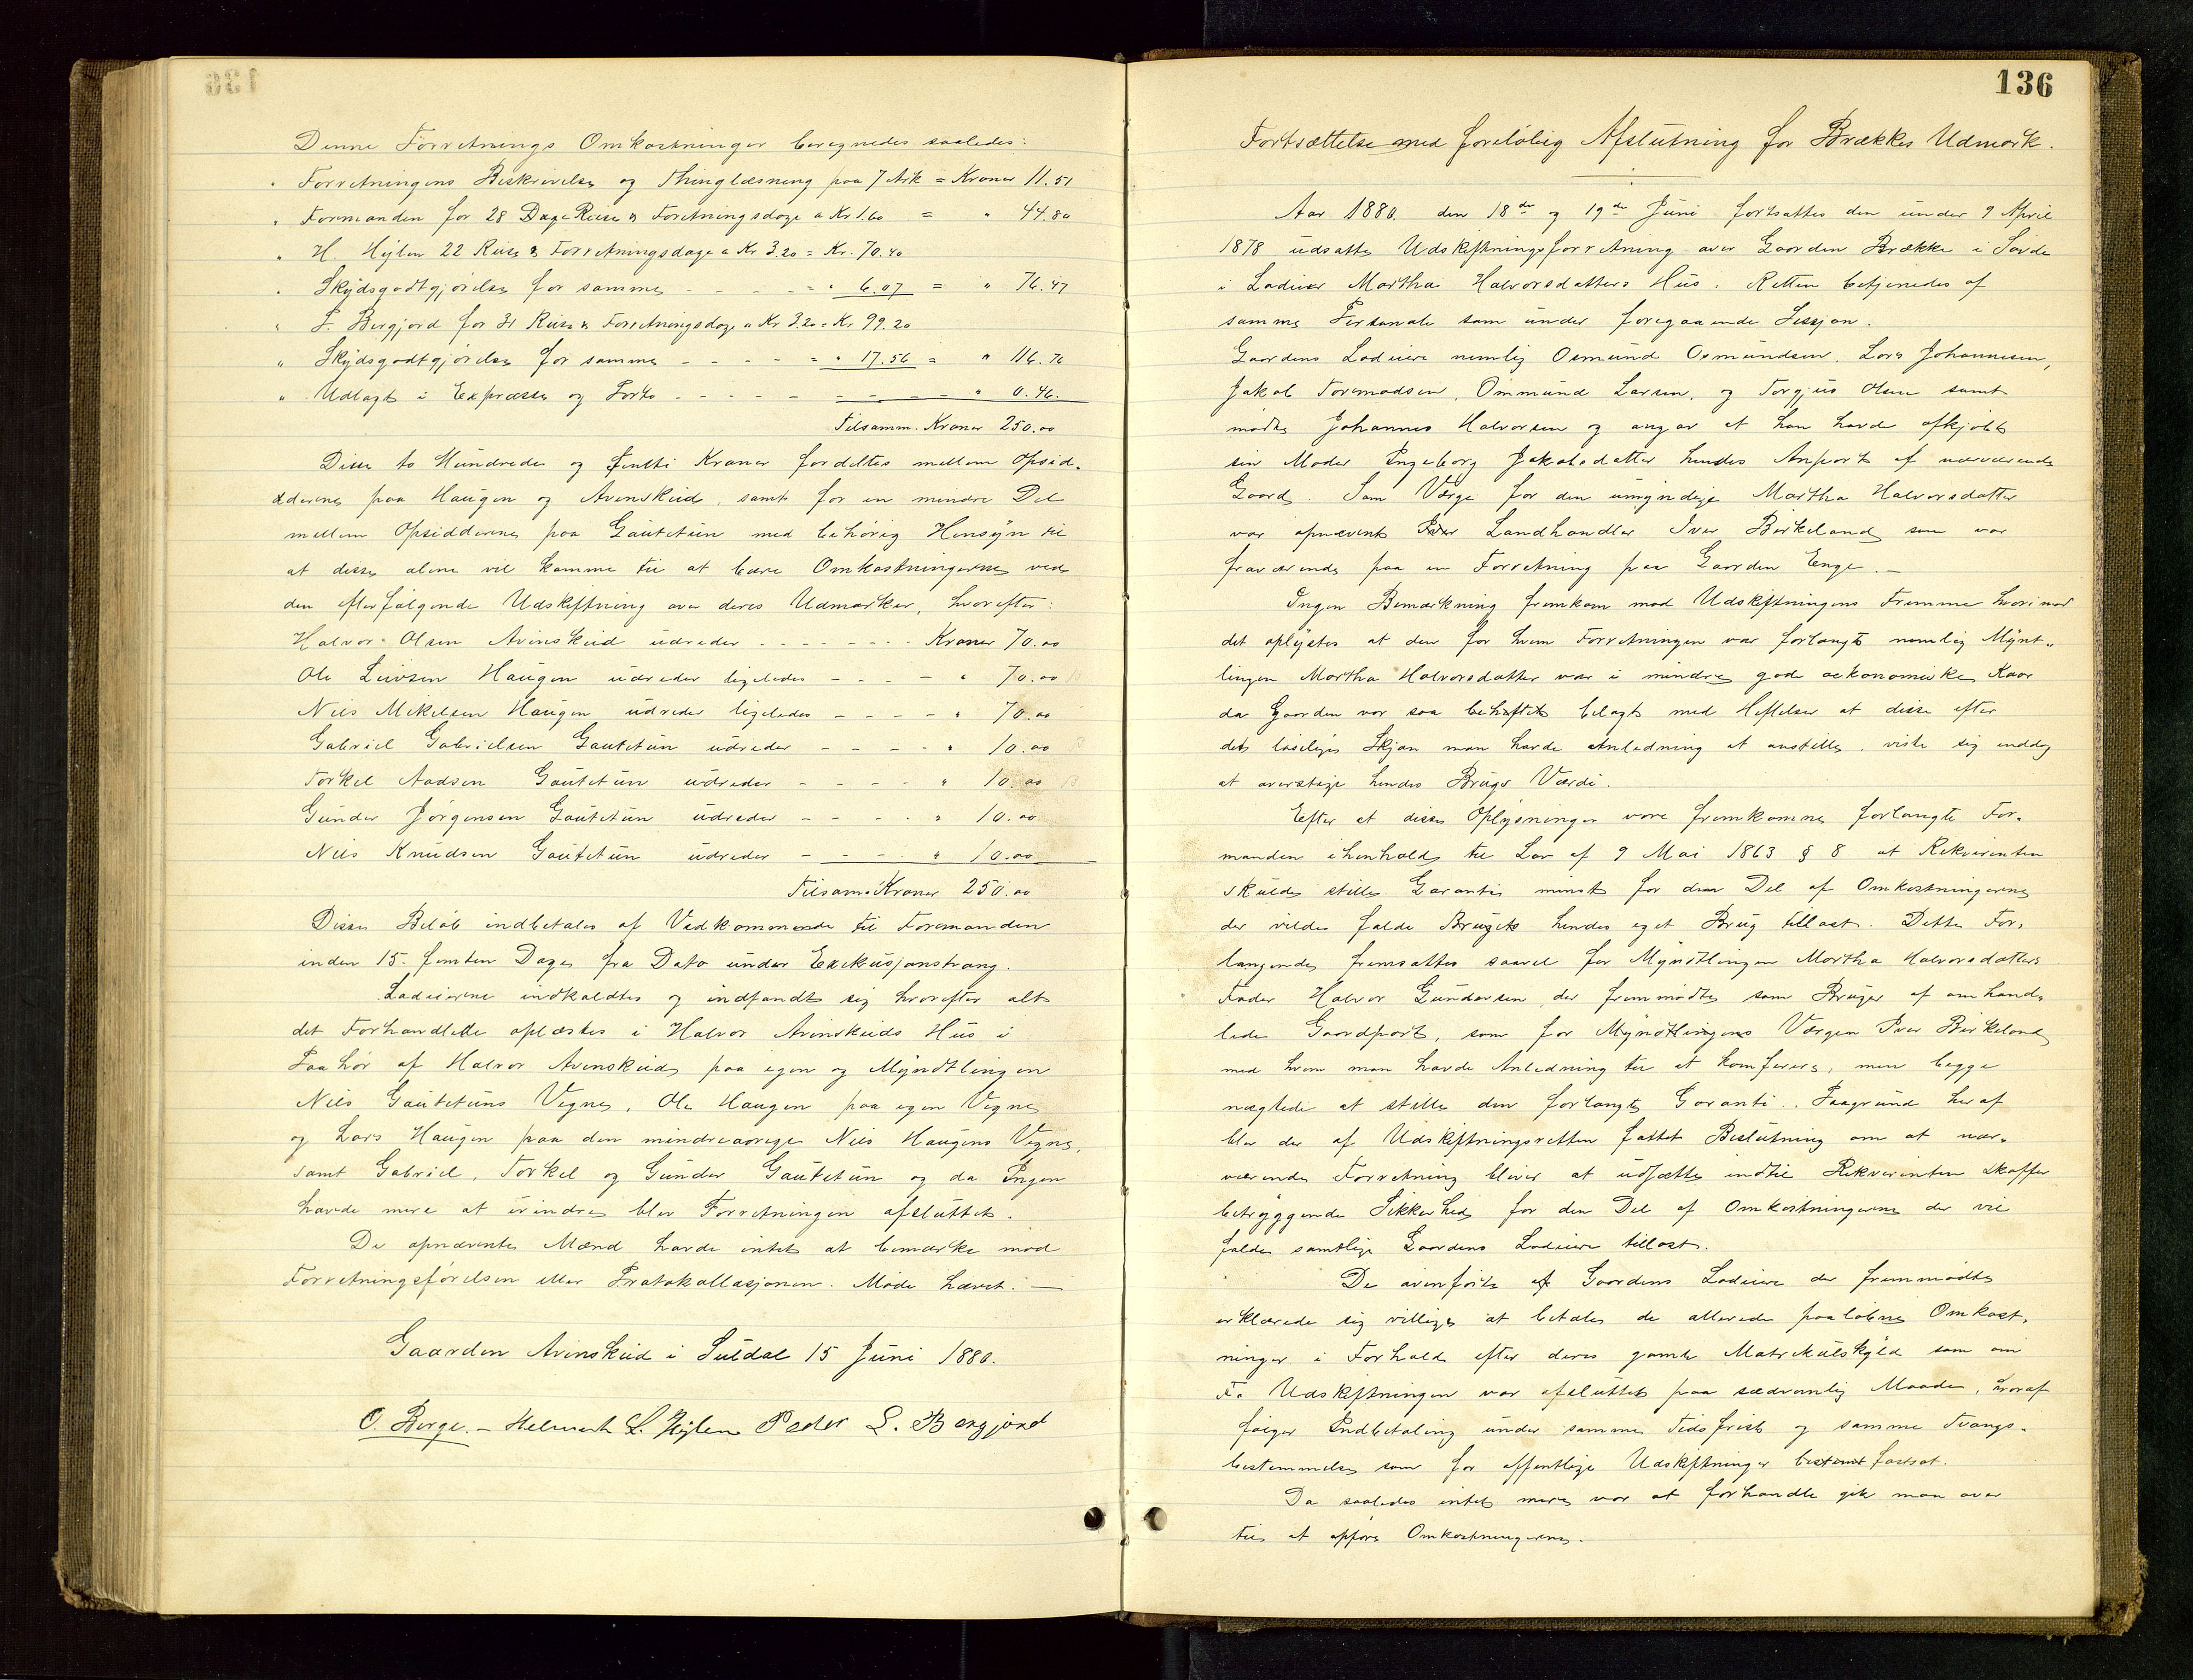 Denne Forretnings Omkostninger beregnedes saaledes:
" Forretningens Beskrivelse og Thinglæsning paa 7 Ark = Kroner 11.51
" Formanden for 28 Dage Reise & Forretningsdage a Kr 1.60 = " 44.80
" H. Hylen 22 Reise & Forretningsdage a Kr 3.20 = Kr. 70.40
" Skydsgodtgjørelse for samme - - - - - = " 6.07 = " 76.47
" P. Bergjord for 31 Reise & Forretningsdage a Kr 3.20 = Kr 99.20
" Skydsgodtgjørelse for samme - - - - = " 17.56 = " 116.76
" Udlagt i Expresse og Porto - - - - - - - - " 0.46.
Tilsamm. Kroner 250.00
Disse to Hundrede og femti Kroner fordeltes mellem Opsid-
dderne paa Haugen og Avinskeid, samt for en mindre Del
mellem Opsidderne paa Gautetun med behørig Hensyn til
at disse alene vil komme til at bære Omkostningerne ved
den efterfølgende Udskiftning over deres Udmarker, hvorefter:
Halvor Olsen Avinskeid udreder - - - - - - Kroner 70.00
Ole Leivsen Haugen udreder ligeledes - - - - " 70.00
Nils Mikelsen Haugen udreder ligeledes - - - - " 70.00
Gabriel Gabrielsen Gautetun udreder - - - - " 10.00
Torkel Aadsen Gautetun udreder - - - - " 10.00
Gunder Jørgensen Gautetun udreder - - - - " 10.00
Nils Knudsen Gautetun udreder - - - - " 10.00
Tilsam. Kroner 250.00
Disse Beløb indbetales af Vedkommende til Formanden
inden 15. femten Dage fra Dato under Exekusjonstvang.
Lodeierne indkaldtes og indfandt sig hvorefter alt
det Forhandlede oplæstes i Halvor Avinskeids Hus i
Paahør af Halvor Avinskeid paa egen og Myndtlingen
Nils Gautetuns Vegne, Ole Haugen paa egen Vegne
og Lars Haugen paa den mindreaarige Nils Haugens Vegne,
samt Gabriel, Torkel og Gunder Gautetun og da Ingen
havde mere at erindre blev Forretningen afsluttet.
De opnævnte Mænd havde intet at bemærke mod
Forretningsførelsen eller Protokollasjonen. Møde hævet. —
Gaarden Avinskeid i Suldal 15 Juni 1880.
O. Berge. - Helmeik L. Hylen Peder L. Bergjord
136
Fortsættelse med foreløbig Afslutning for Brække Udmark.
Aar 1880. den 18de og 19de Juni fortsattes den under 9 April
1878 udsatte Udskiftningsforretning over Gaarden Brække i Søvde
i Lodeier Martha Halvorsdatters Hus. Retten betjenedes af
samme Personale som under foregaaende Sessjon.
Gaardens Lodeiere nemlig Osmund Osmundsen, Lars Johannesen,
Jakob Tormodsen, Ommund Larsen, og Torgjus Olsen samt
mødte Johannes Halvorsen og angav at han havde afkjøbt
sin Moder Ingeborg Jakobsdatter hendes Anpart af nærværende
Gaard. Som Værge for den umyndige Martha Halvorsdatter
var opnævnt Landhandler Iver Birkeland som var
fraværende paa en Forretning paa Gaarden Enge. —
Ingen Bemærkning fremkom mod Udskiftningens Fremme hvorimod
det oplystes at den for hvem Forretningen var forlangt nemlig Mynt-
lingen Martha Halvorsdatter var i mindre gode oekonomiske Kaar
da Gaarden var saa behæftet belagt med Heftelser at disse efter
det løselige Skjøn man havde Anledning at anstille, viste sig endog
at overstige hendes Brugs Værdi.
Efter at disse Oplysninger vare fremkomne forlangte For-
manden ihenhold til Lov af 9 Mai 1863 § 8 at Rekvirenten
skulde stille Garanti minst for den Del af Omkostningerne
der vilde falde Brugets hendes eget Brug tillast. Dette For-
langende fremsattes saavel for Myndtlingen Martha Halvorsdatters
Fader Halvor Gundersen der fremmødte som Bruger af omhand-
lede Gaardpart, som for Myndtlingens Værgen Iver Birkeland
med hvem man havde Anledning til at konferere, men begge
nægtede at stille den forlangte Garanti. Paagrund heraf
blev der af Udskiftningsretten fattet Beslutning om at nær-
værende Forretning bliver at udsætte indtil Rekvirenten skaffer
betryggende Sikkerhed for den Del af Omkostningerne der vil
falde samtlige Gaardens Lodeiere tillast.
De ovenførte af Gaardens Lodeiere der fremmødte
erklærede sig villige at betale de allerede paaløbne Omkost-
ninger i Forhold efter deres gamle Matrikulskyld som om
Udskiftningen var afsluttet paa sædvanlig Maade, hvoraf
følger Indbetaling under samme Tidsfrist og samme Tvangs-
bestemmelse som for offentlige Udskiftninger bestemt fastsat.
Da saaledes intet mere var at forhandle gik man over
til at opføre Omkostningerne.